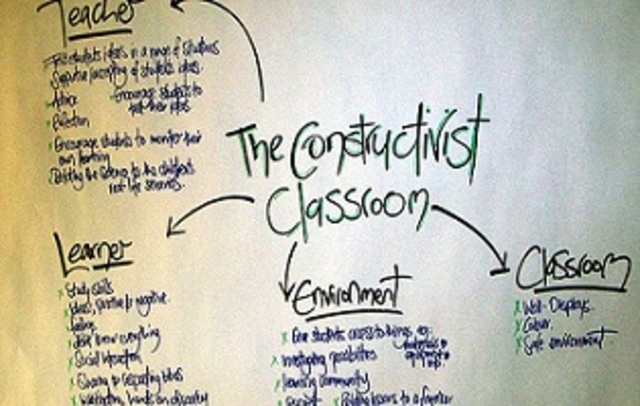 Teacher
students ideas in a range of situations
Supportive/accepting of students ideas.
Advice
Encourage students to
test their ideas
Reflection
Encourage students to monitor their
own learning
the science to the childrens
real life
The Constructivist
Classroom
Learner
Study skills
Ideas, positive & negative.
feelings
don't know everything
Social interaction
Sharing & respecting ideas
hands on discovery
Environment
Give students access to things eg:
materials
equipment
Investigating possibilities
learning community
lessons to a
Classroom
Wall-Displays.
Colour.
Safe environment